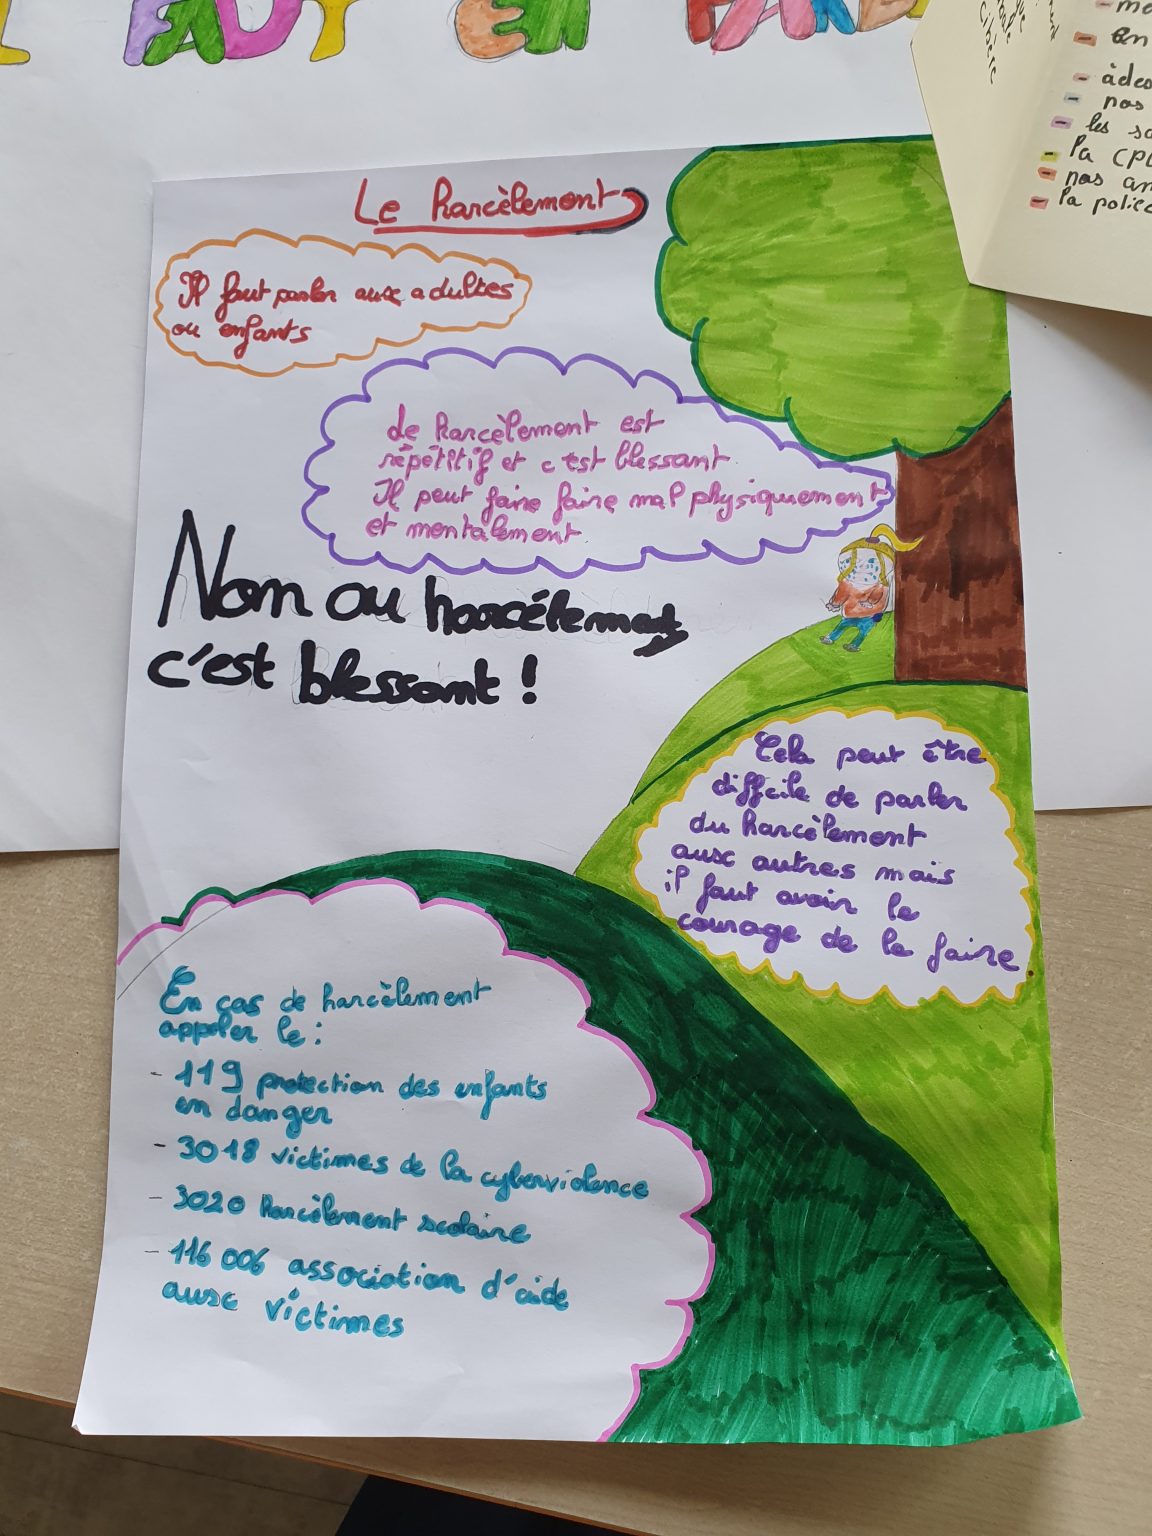 FAUT EN PARLER
Le harcèlement
Il faut parler aux adultes
ou enfants
de harcèlement est
répétitif et c'est blessant
Il peut faire faire mal physiquement
et mentalement
Nom au harcélement
c'est blessant !
Cela peut être
difficile de parler
du harcèlement
aux autres mais
il faut avoir le
courage de le faire
En cas de harcèlement
appeler le :
- 119 protection des enfants
en danger
- 3018 victimes de la cyberviolence
- 3020 harcèlement scolaire
- 116 006 association d'aide
aux victimes
- nos
- les
- la
- nos
- la police